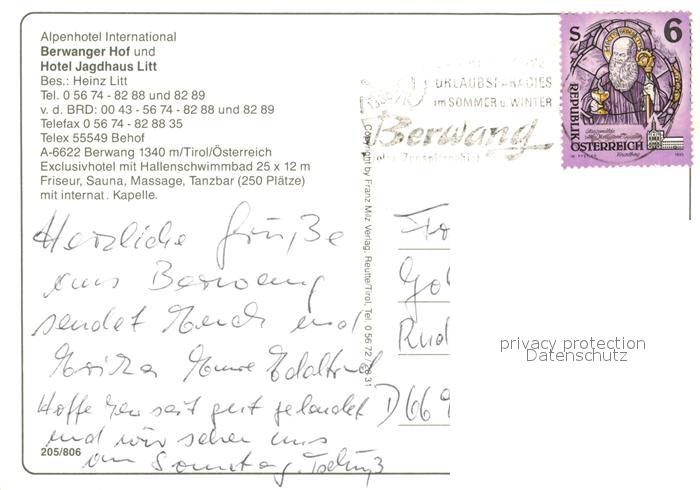 Alpenhotel International
Berwanger Hof und
Hotel Jagdhaus Litt
Bes.: Heinz Litt
Tel. 0 56 74 - 82 88 und 82 89
v. d. BRD: 00 43 - 56 74 - 82 88 und 82 89
Telefax 0 56 74 - 82 88 35
Telex 55549 Behof
A-6622 Berwang 1340 m/Tirol/Österreich
Exclusivhotel mit Hallenschwimmbad 25 x 12 m
Friseur, Sauna, Massage, Tanzbar (250 Plätze)
mit internat. Kapelle.
URLAUBSPARADIES
im SOMMER u. WINTER
Berwang
S 6
REPUBLIK
ÖSTERREICH
Copyright by Franz Milz Verlag, Reutte/Tirol, Tel. 0 56 72 / 28 31
Herzliche Grüße
aus Berwang
sendet Euch und
Eure
Hoffe Ihr seit gut gelandet
und wir sehen uns
am Sonntag. Tschüß
Rud
D 66
privacy protection
Datenschutz
205/806